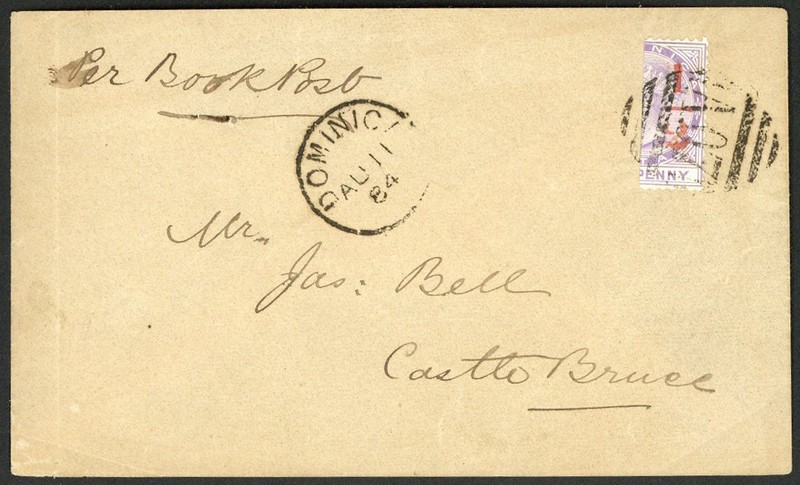 Per Book Post
DOMINICA
AU 11
84
PENNY
Mr.
Jas: Bell
Castle Bruce